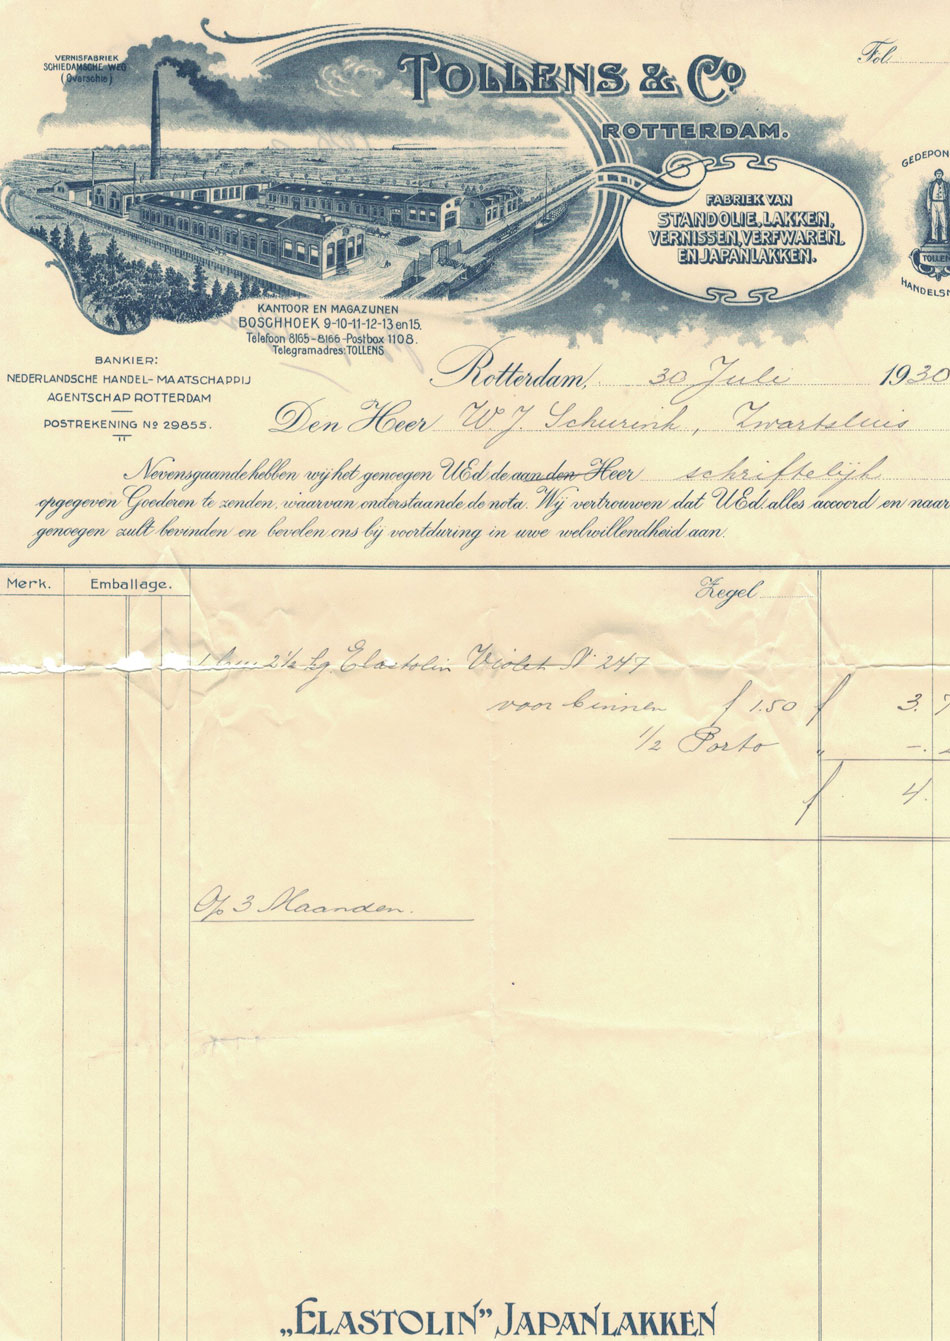 VERNISFABRIEK
SCHIEDAMSCHE WEG
(Overschie)
TOLLENS & Co
ROTTERDAM.
Fol.
FABRIEK VAN
STANDOLIE, LAKKEN,
VERNISSEN, VERFWAREN,
EN JAPANLAKKEN.
GEDEPON
TOLLEN
HANDELSM
KANTOOR EN MAGAZIJNEN
BOSCHHOEK 9-10-11-12-13 en 15.
Telefoon 8165-8166-Postbox 1108.
Telegramadres: TOLLENS
BANKIER:
NEDERLANDSCHE HANDEL-MAATSCHAPPIJ
AGENTSCHAP ROTTERDAM
POSTREKENING No 29855.
Rotterdam, 30 Juli 1930
Den Heer W. J. Schurink, Zwartsluis
Nevensgaande hebben wij het genoegen UEd de aan den Heer schriftelijk
opgegeven Goederen te zenden, waarvan onderstaande de nota. Wij vertrouwen dat UEd. alles accoord en naar
genoegen zult bevinden en bevelen ons bij voortduring in uwe welwillendheid aan.
Merk. Emballage. Zegel
1 2½ kg Elastolin Violet No 247
voor binnen f 1.50 f 3.7
1/2 Porto " -.
f 4.
Op 3 Maanden.
„ELASTOLIN” JAPANLAKKEN